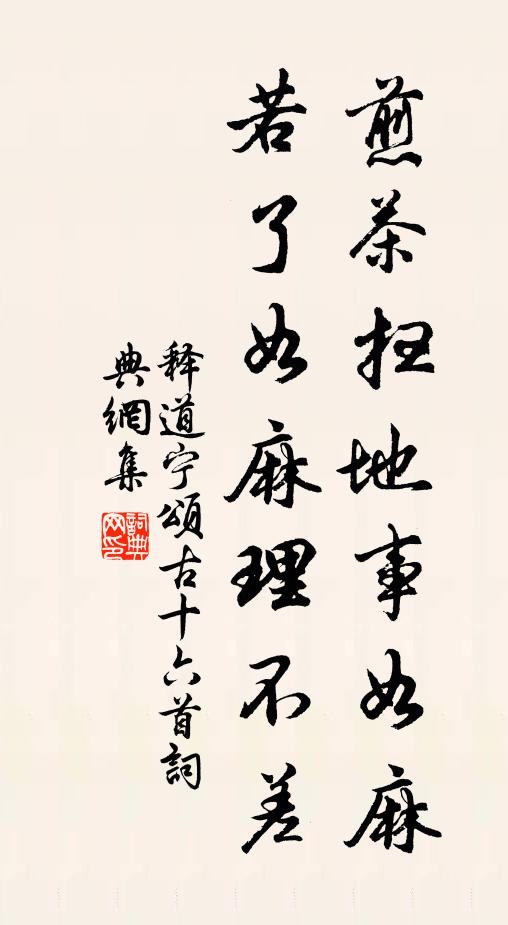 煎茶扫地事如麻
若了如麻理不差
释道宁頌古十六首詞
典網集
詞典网印